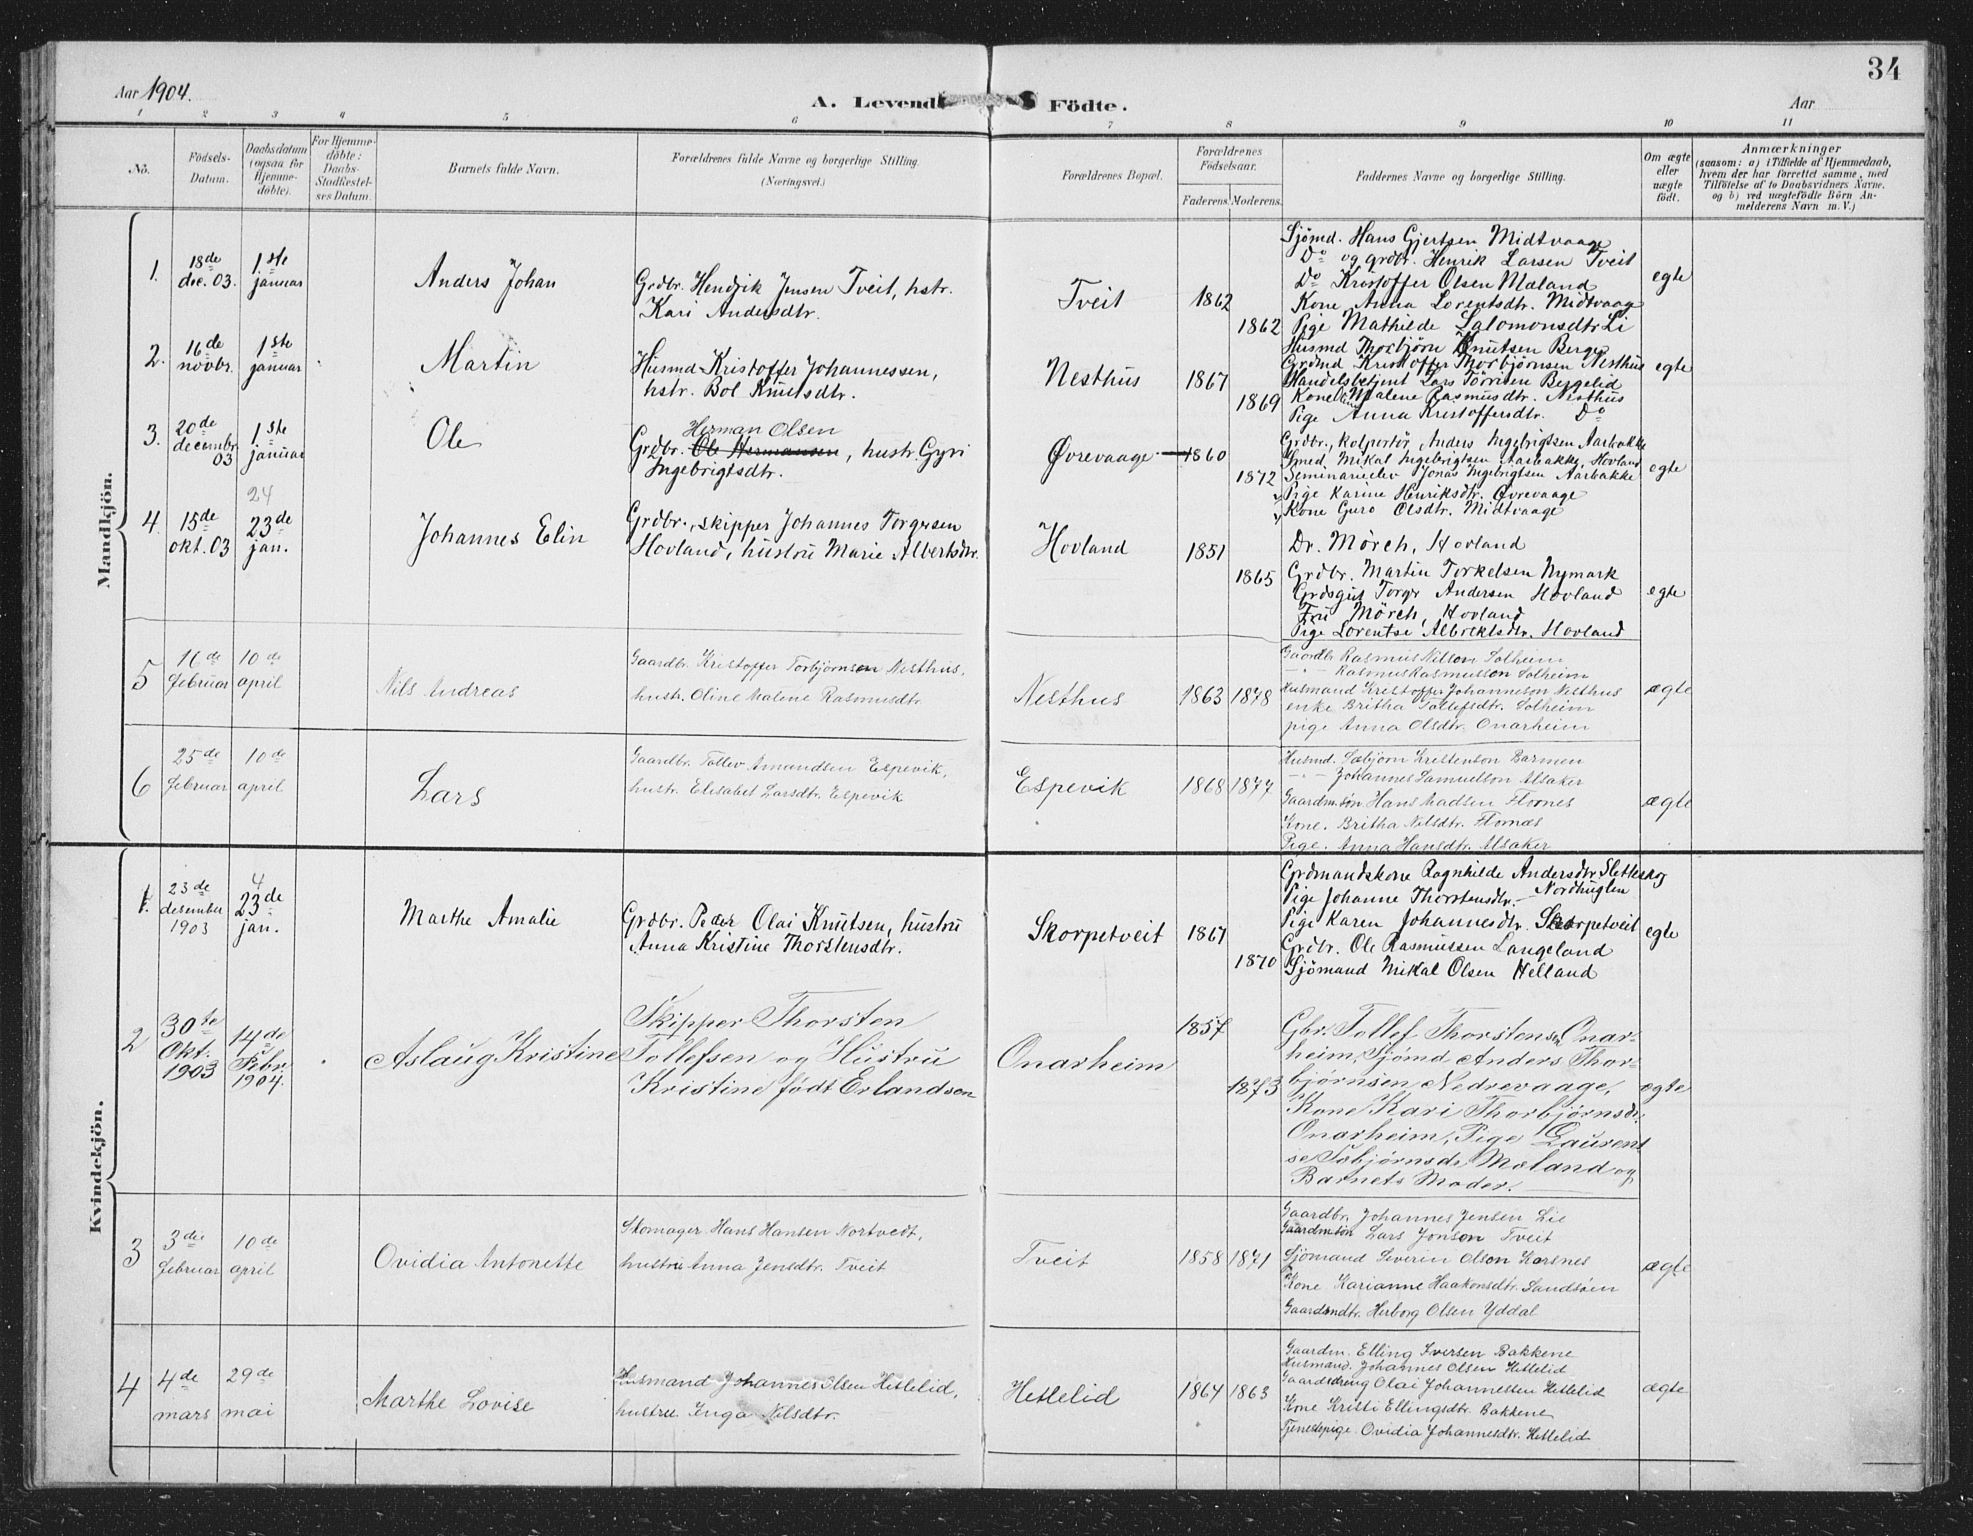 34
Aar 1904.
A. Levende Födte.
Aar
1 2 3 4 5 6 7 8 9 10 11
No.
Födsels-
Datum.
Daabsdatum
(ogsaa for
Hjemme-
döbte).
For Hjemme-
döbte:
Daabs-
Stadfæstel-
ses Datum.
Barnets fulde Navn.
Forældrenes fulde Navne og borgerlige Stilling.
(Næringsvei.)
Forældrenes Bopæl.
Forældrenes
Födselsaar.
Faderens. Moderens.
Faddernes Navne og borgerlige Stilling.
Om ægte
eller
uægte
födt.
Anmærkninger
(saasom: a) i Tilfælde af Hjemmedaab,
hvem der har forrettet samme, med
Tilföielse af to Daabsvidners Navne.
og b) ved uægtefödte Börn An-
melderens Navn m. V.)
Mandkjön.
1.
18de
dec. 03.
1.ste
januar
Anders Johan
Grdbr. Hendrik Jensen Tveit, hstr.
Kari Andersdtr.
Tveit
1862
1862
Sjömd. Hans Gjertsen Midtvaage
Do og grdbr. Henrik Larsen Tveit
Do Kristoffer Olsen Mæland
Kone Anna Lorentsdtr. Midtvaage
Pige Mathilde Salomonsdtr Li
egte
2.
16de
novbr.
1ste
januar
Martin
Husmd. Kristoffer Johannessen,
hstr. Bol Knutsdtr.
Nesthus
1867
1869
Husmd Thorbjörn Knutsen Berge
Grdmd Kristoffer Thorbjörnsen Nesthus
Handelsbetjent Lars Törrisen Bergelid
Kone Malene Rasmusdtr. Nesthus
Pige Anna Kristoffersdtr. Do
egte
3.
20de
decembr
03
1ste
januar
Ole
Herman Olsen
Grdbr. Ole Hermansen, hustr Gyri
Ingebrigtsdtr.
Øvrevaage
1860
1872
Grdbr., kolportör Anders Ingebrigtsen Aarbakke
Smed Mikal Ingebrigtsen Aarbakke, Hovland
Seminarielev Jonas Ingebrigtsen Aarbakke
Pige Karine Henriksdtr. Øvrevaage
Kone Guro Olsdtr. Midtvaage
egte
4.
15de
okt. 03
24
23de
jan.
Johannes Elin
Grdbr., skipper Johannes Torgersen
Hovland, hustru Marie Albertsdtr.
Hovland
1851
1865
Dr. Mörch, Hovland
Grdbr. Martin Torkelsen Nymark
Grdsgut Torger Andersen Hovland
Fru Mörch, Hovland
Pige Lorentse Albrektsdtr. Hovland
egte
5
16de
februar
10de
april
Nils Andreas
Gaardbr. Kristoffer Torbjörnsen Nesthus,
hustr. Oline Malene Rasmusdtr.
Nesthus
1863
1878
Gaardbr Rasmus Nilson Solheim
— " — Rasmus Rasmusson Solheim
Husmand Kristoffer Johanneson Nesthus
enke Britha Tollefsdtr. Solheim
pige Anna Olsdtr. Onarheim
ægte
6
25de
februar
10de
april
Lars
Gaardbr. Tollev Amundsen Espevik,
hustr. Elisabet Larsdtr. Espevik
Espevik
1868
1877
Husmd. Sæbjörn Kristenson Barmen
— " — Johannes Samuelson Alsaker
Gaardm.sön Hans Madsen Flornes
Kone. Britha Nilsdtr. Flornæs
Pige. Anna Hansdtr. Alsaker
ægte
Kvindekjön.
1.
23de
desember
1903
4
23de
jan.
Marthe Amalie
Grdbr. Peder Olai Knutsen, hustru
Anna Kristine Thorstensdtr.
Skorpetveit
1867
1870
Grdmandskone Ragnhilde Andersdtr Sletteskog
Pige Johanne Thorstensdtr. — Nordhuglen
Pige Karen Johannesdtr. Skorpetveit
Grdbr. Ole Rasmussen Langeland
Sjömand Mikal Olsen Helland
egte
2
30te
Okt.
1903
14de
Febr.
1904.
Aslaug Kristine
Skipper Thorsten
Tollefsen og Hustru
Kristine född Erlandsen
Onarheim
1857
1873
Gbr. Tollef Thorstens. Onar-
heim, Sjömd Anders Thor-
bjørnsen Nedrevaage,
Kone Kari Thorbjørnsdr.
Onarheim, Pige Laurent
se Tobjørnsdr. Mæland og
Barnets Moder.
egte
3
3die
februar
10de
april
Ovidia Antonette
Skomager Hans Hansen Nortvedt,
hustru Anna Jensdtr. Tveit
Tveit
1858
1871
Gaardbr. Johannes Jensen Lie
Gaardmsön Lars Jonson Tveit
Sjömand Severin Olson Korsnes
Kone Karianne Haakonsdtr. Sandsöen
Gaardmdtr. Herborg Olsen Yddal
ægte
4
4de
mars
29de
mai
Marthe Lovise
Husmand Johannes Olsen Hettelid,
hustru Inga Nilsdtr.
Hettelid
1864
1863
Gaardm. Elling Iversen Bakkene
Husmand. Johannes Olsen Hettelid
Gaardsdreng Olai Johannessen Hettelid
Kone Kristi Ellingsdtr. Bakkene
Tjenestepige Ovidia Johannesdtr. Hettelid
ægte